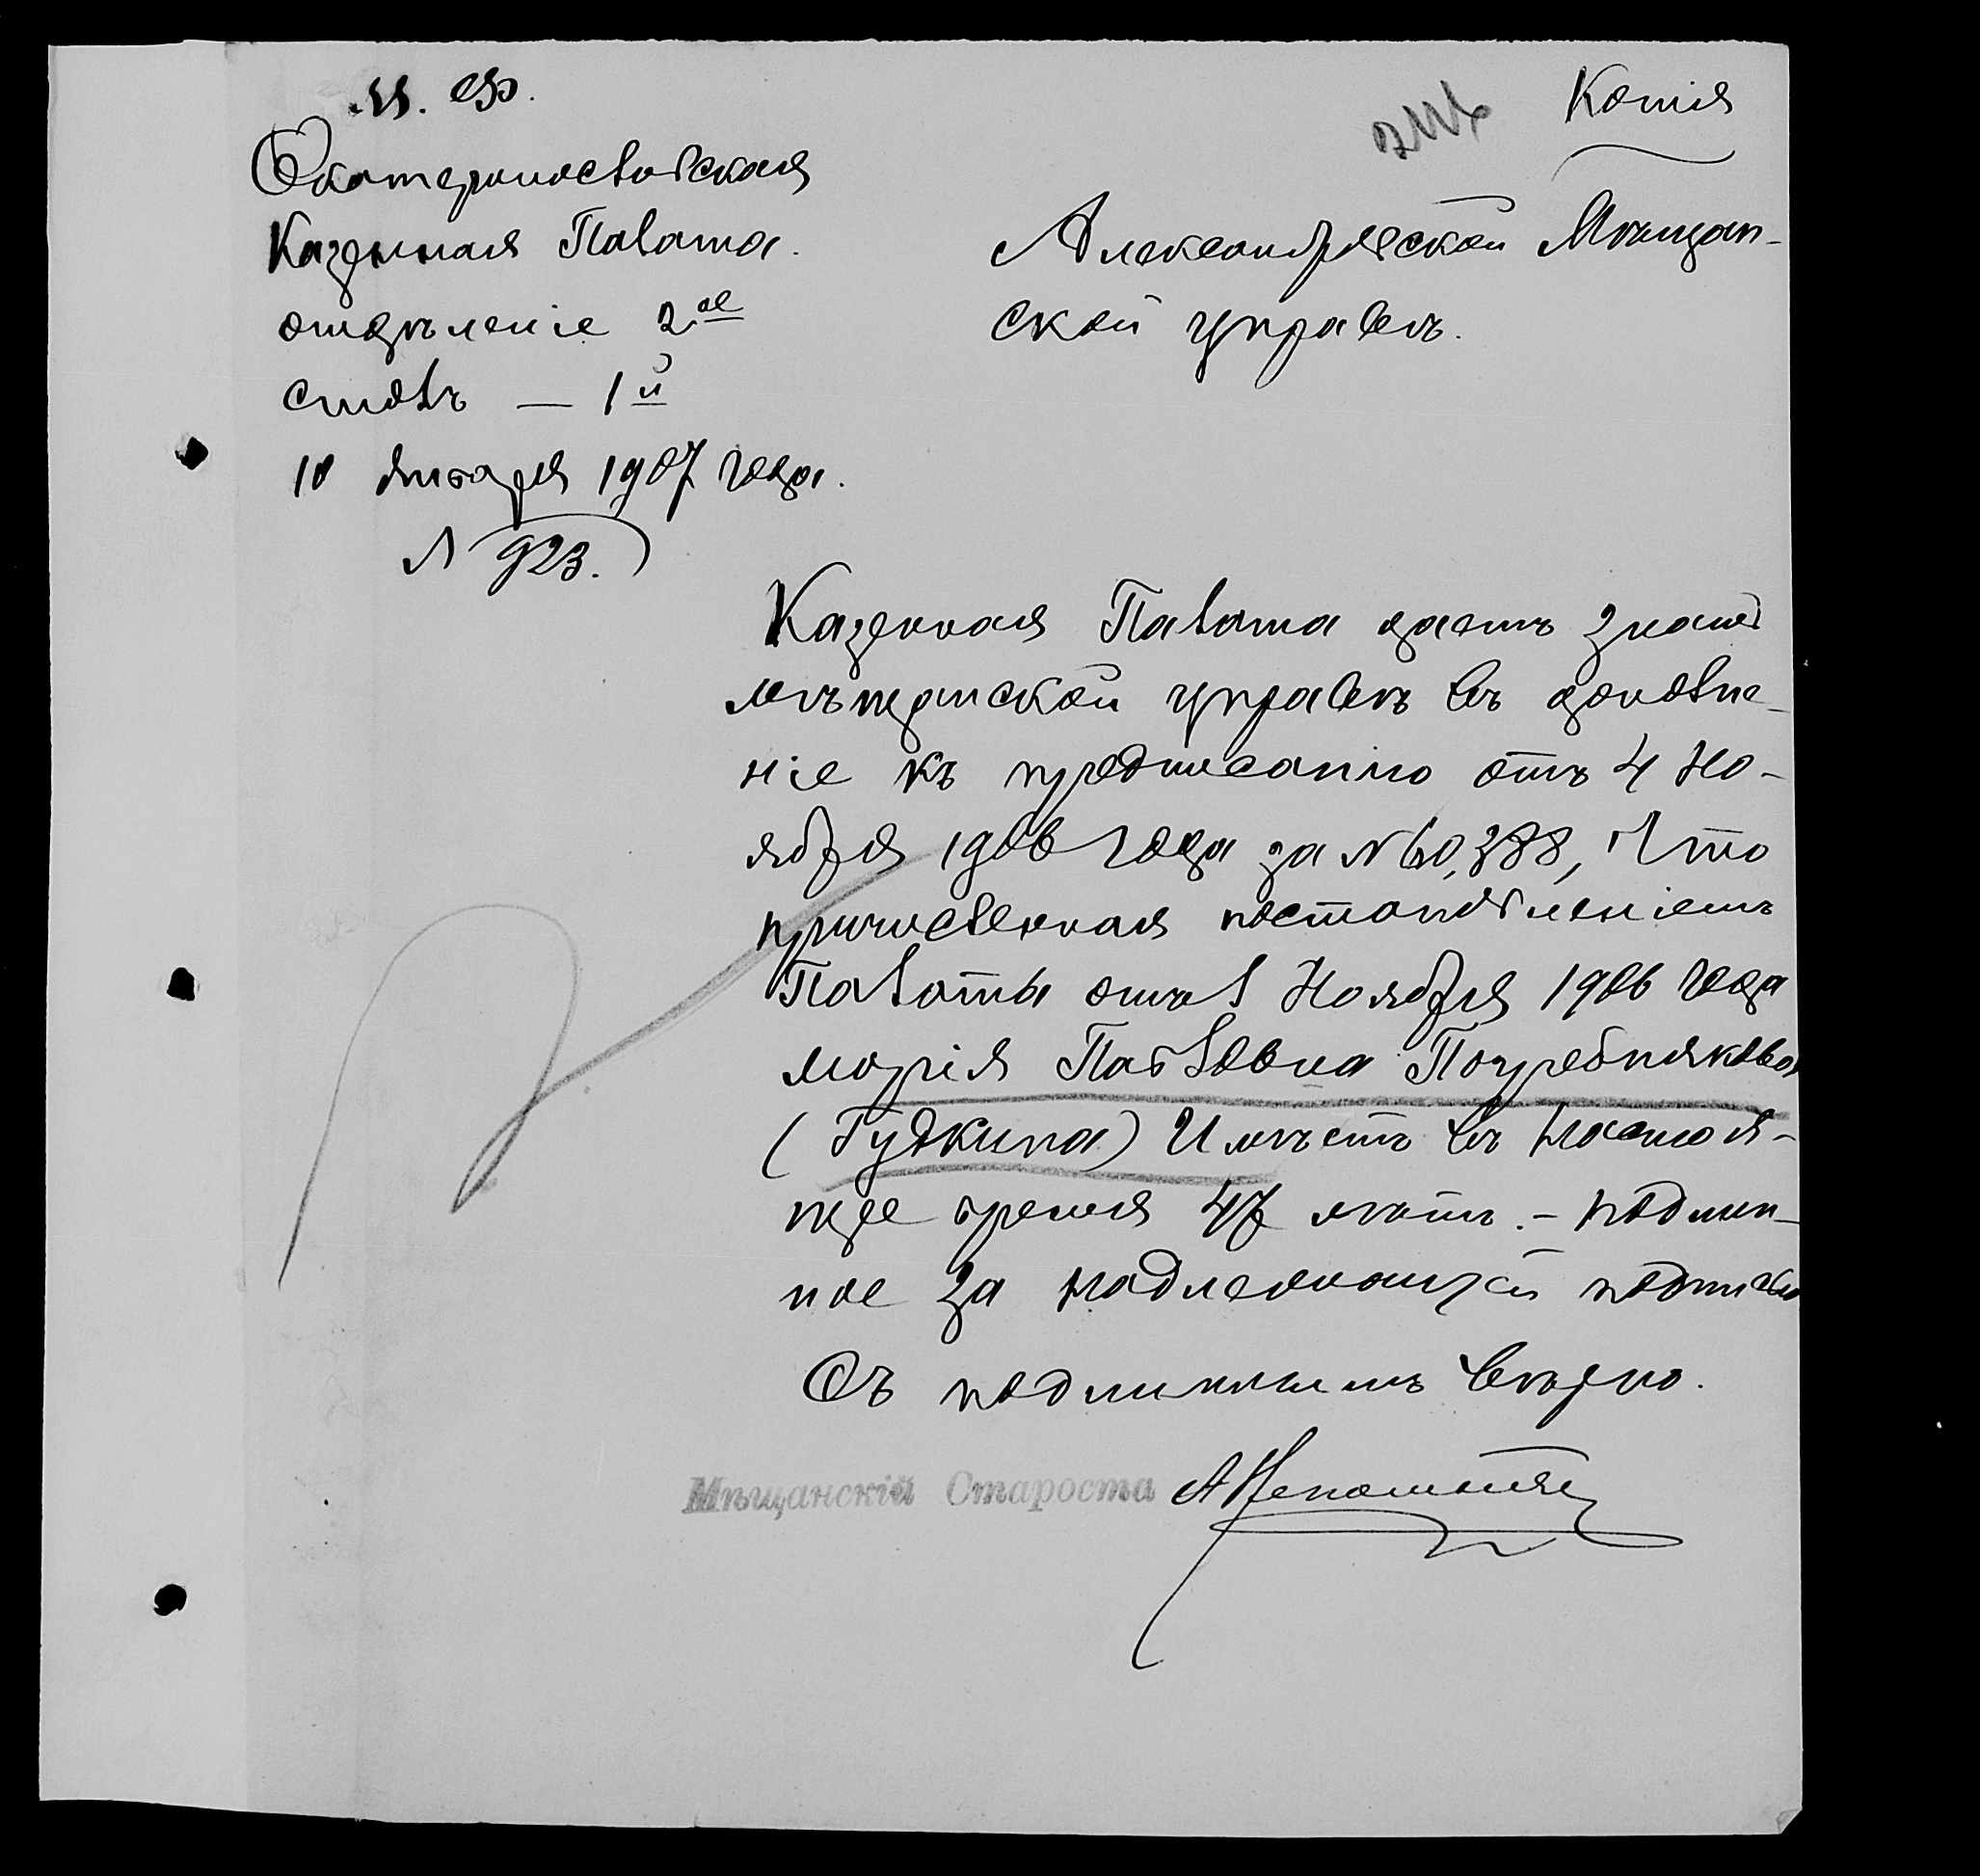 М. Ф.
Копія
Екатеринославская
Казенная Палата.
отдѣленіе 2ое
столъ — 1й
10 января 1907 года.
№ 923.
Александровской Мѣщан-
ской управѣ.
Казенная Палата даетъ знать
мѣщанской управѣ въ дополне-
ніе къ предписанію отъ 4 Но-
ября 1906 года за №60,388, Что
причисленная постановленіемъ
Палаты отъ 1 Ноября 1906 года
марія Павловна Погребнякова
(Гудкина) Имѣетъ въ настоя-
щее время 47 лѣтъ. – подлин-
ное за надлежащей подписью
Съ подлиннымъ вѣрно.
Мѣщанскій Староста